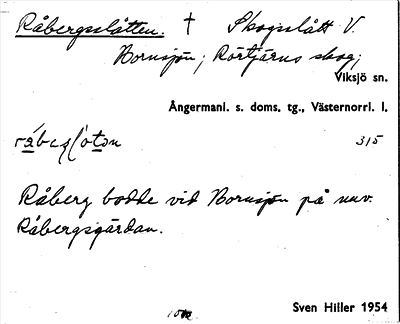 Råbergsslåtten. † Skogslått V.
Bornsjön; Rörtjärns skog;
Viksjö sn.
Ångermanl. s. doms. tg., Västernorrl. l.
315
Råberg bodde vid Bornsjön på nuv.
Råbergsgårdan.
Sven Hiller 1954